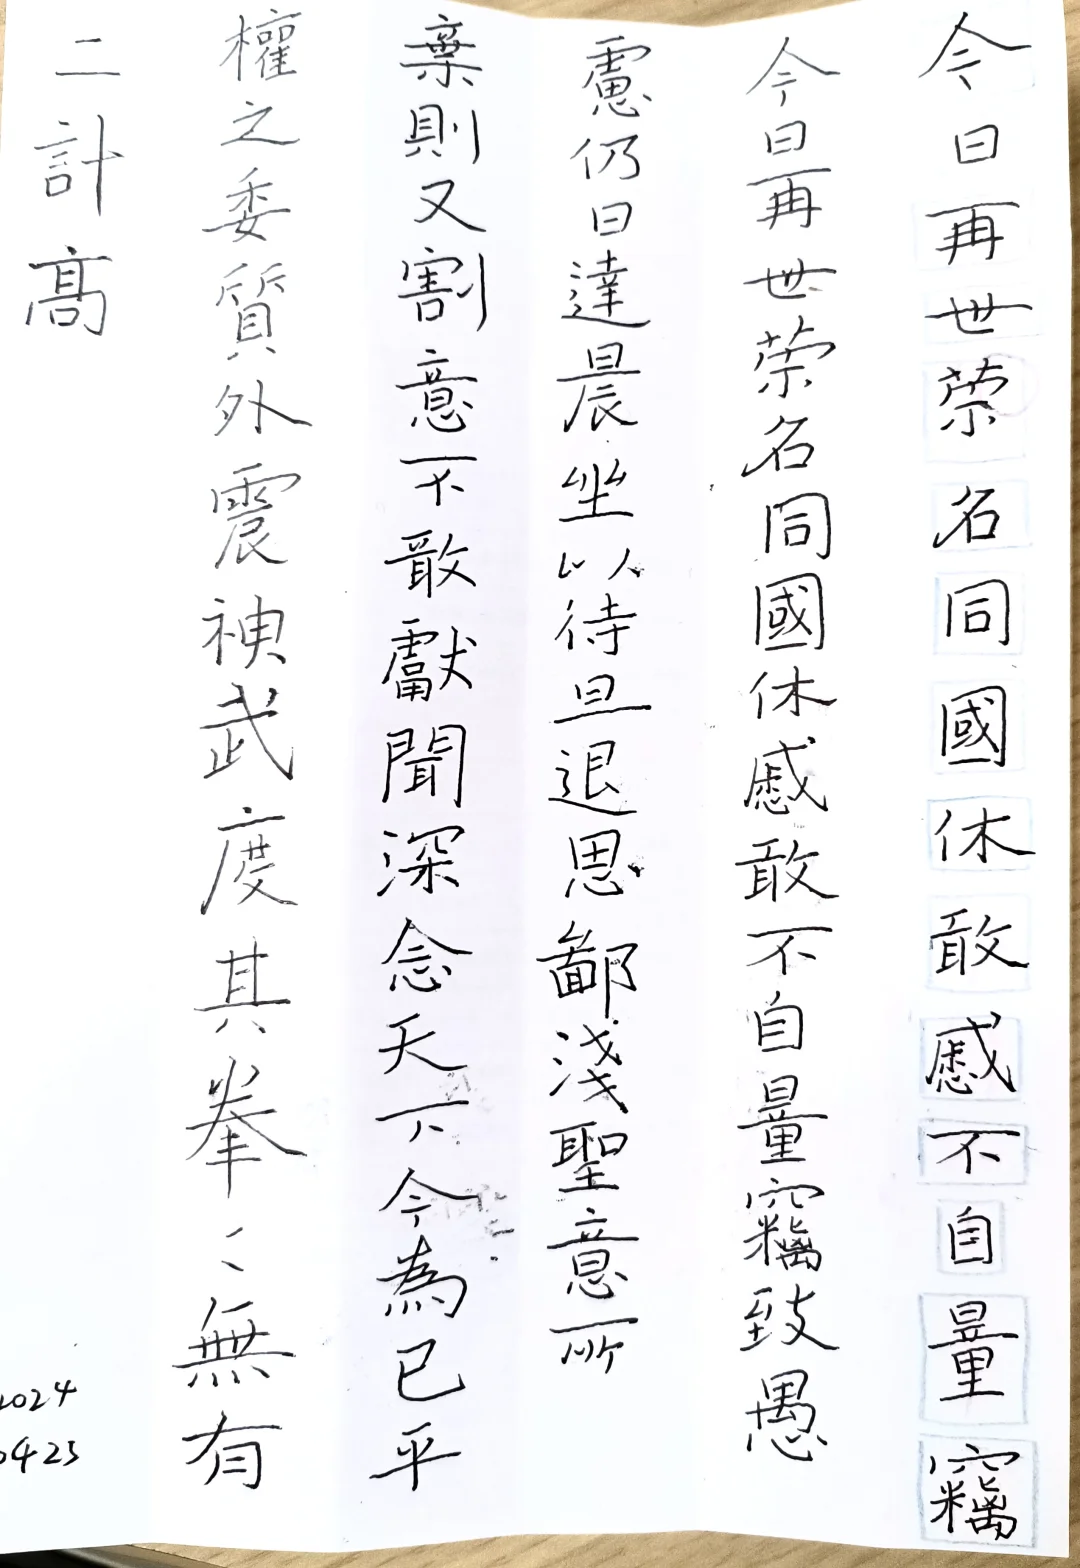 今日再世荣名同國休敢慼不自量竊
今日再世荣名同國休慼敢不自量竊致愚
慮仍日達晨坐以待旦退思鄙淺聖意所
棄則又割意不敢獻聞深念天下今為已平
權之委質外震神武度其拳〻無有
二計高
2024
0423